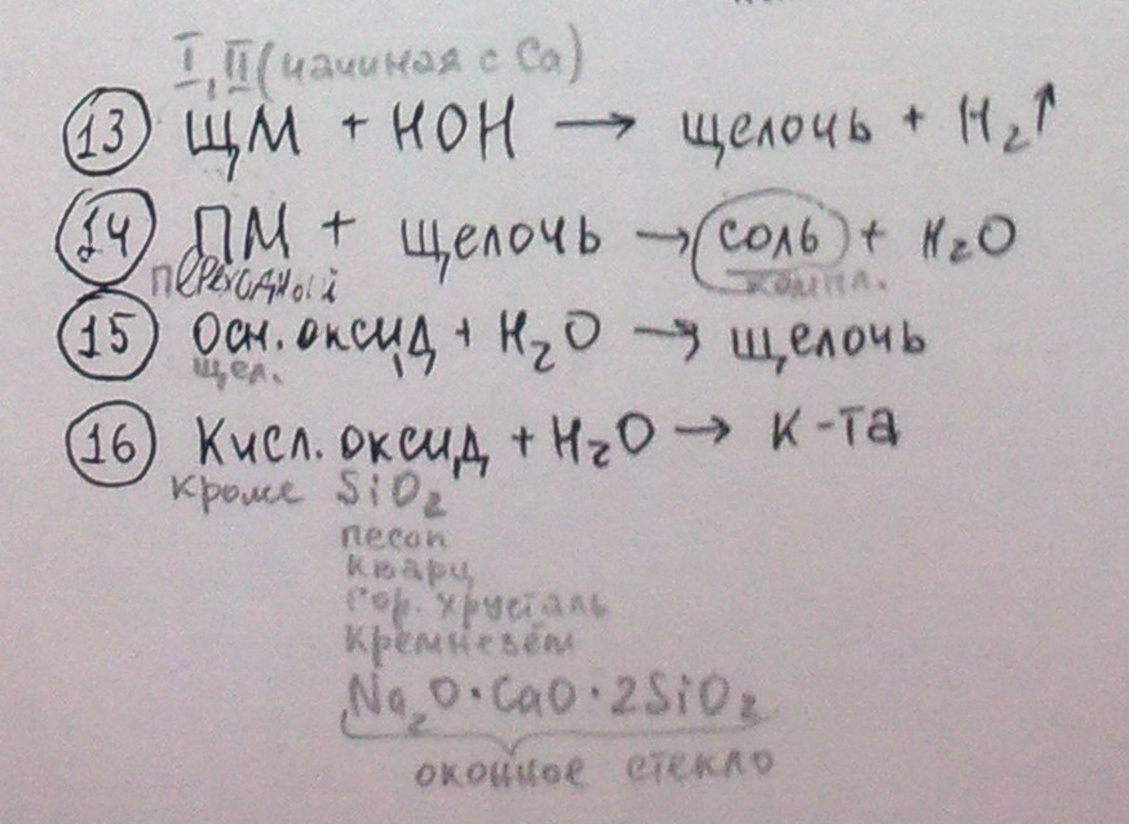 I, II (начиная с Ca)
13 ЩМ + HOH → щелочь + H₂↑
14 ПМ + щелочь → соль + H₂O
переходный компл.
15 Осн. оксид + H₂O → щелочь
щел.
16 Кисл. оксид + H₂O → к-та
кроме SiO₂
песок
кварц
гор. хрусталь
кремнезём
Na₂O·CaO·2SiO₂
оконное стекло